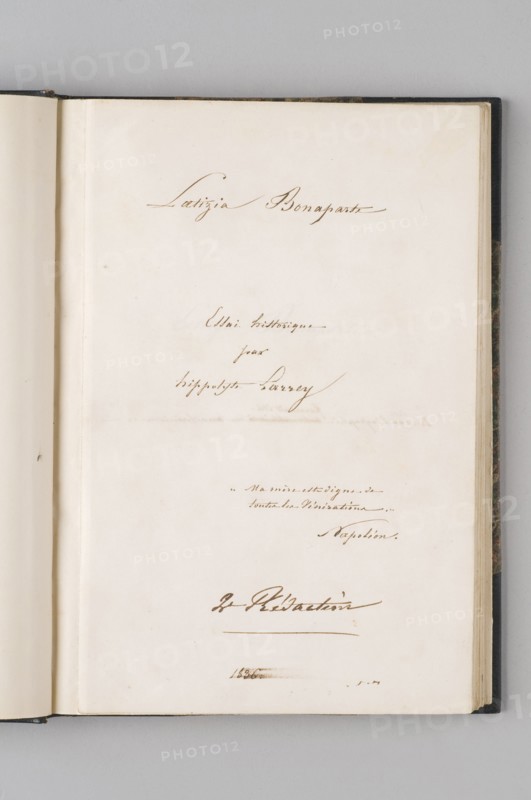 Lætizia Bonaparte
Essai historique
par
hippolyte Larrey
" Ma mère est digne de
toutes les Vénérations. "
Napoléon.
2e Rédaction
PHOTO12